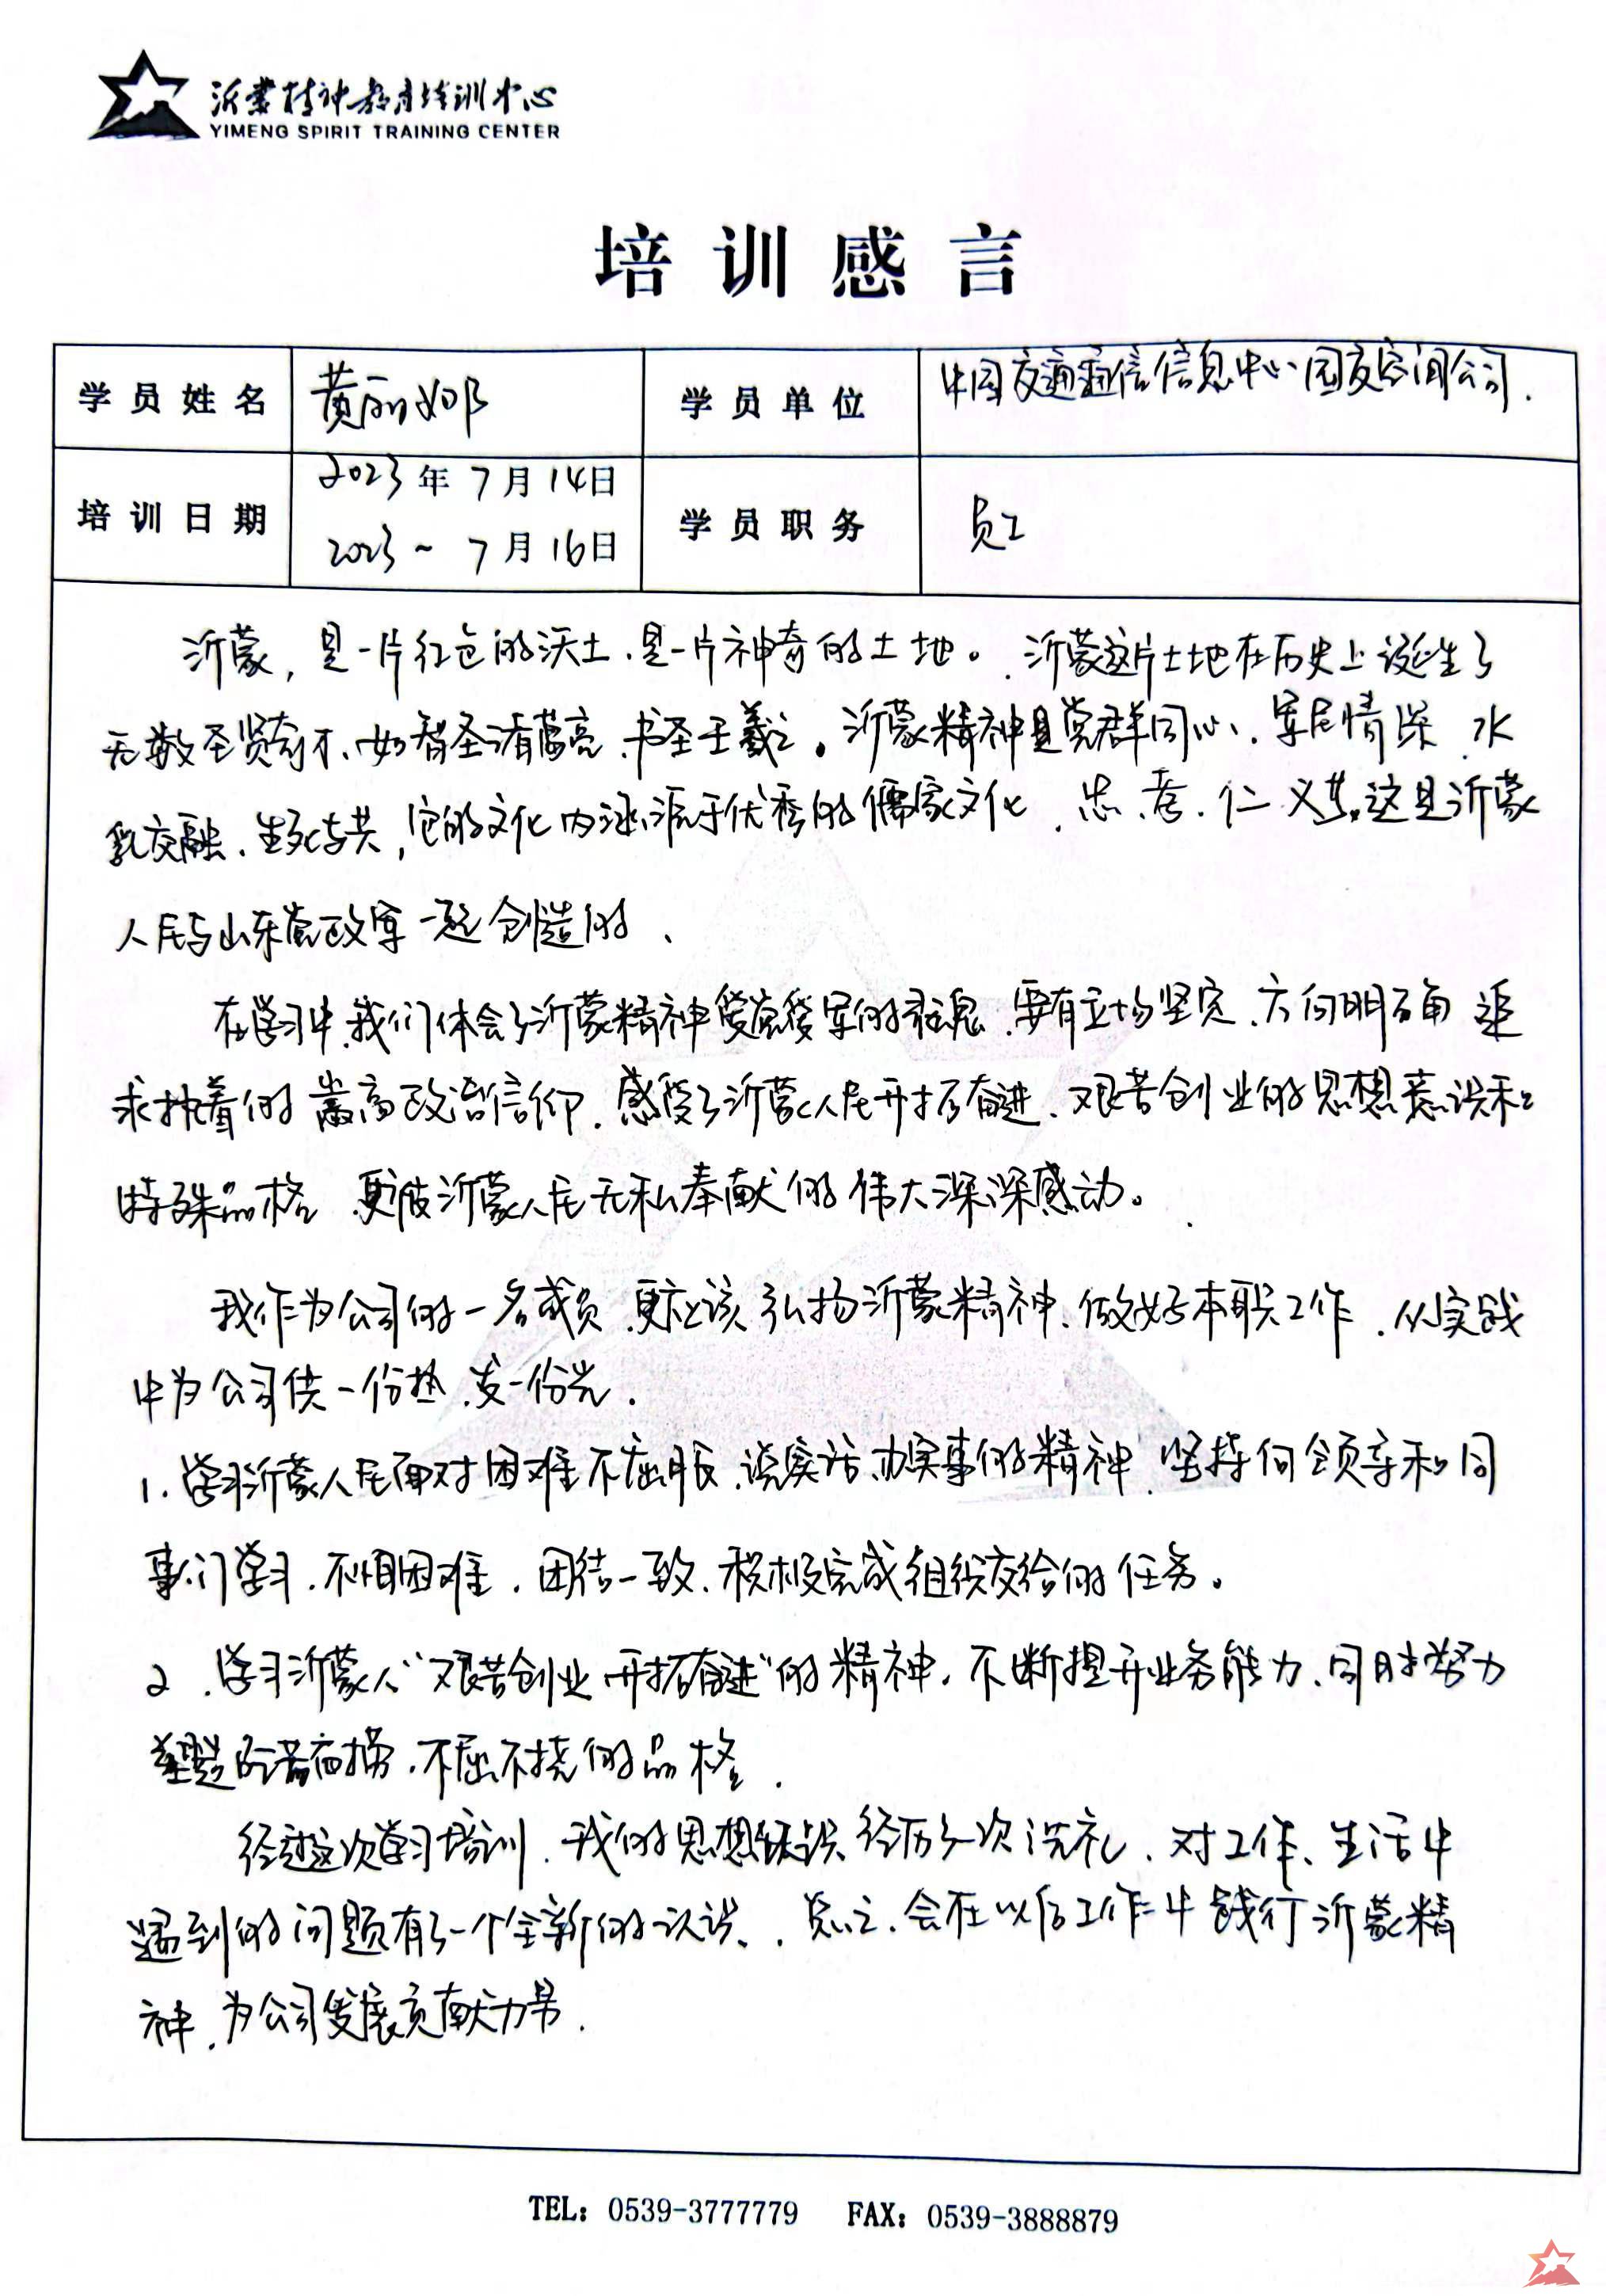 沂蒙精神教育培训中心
YIMENG SPIRIT TRAINING CENTER
培训感言
学员姓名 黄丽娜 学员单位 中国交通通信信息中心国交空间公司.
培训日期 2023年7月14日 2023~7月16日 学员职务 员工
沂蒙，是一片红色的沃土、是一片神奇的土地。沂蒙这片土地在历史上诞生了
无数圣贤奇才、如智圣诸葛亮、书圣王羲之。沂蒙精神是党群同心、军民情深、水
乳交融、生死与共，它的文化内涵源于优秀的儒家文化、忠、孝、仁、义等。这是沂蒙
人民与山东党政军一起创造的、
在学习中，我们体会了沂蒙精神爱党爱军的灵魂、要有立场坚定、方向明确、追
求执着的崇高政治信仰、感受了沂蒙人民开拓奋进、艰苦创业的思想意识和
特殊品格、更被沂蒙人民无私奉献的伟大深深感动。
我作为公司的一名成员、更应该弘扬沂蒙精神、做好本职工作、从实践
中为公司供一份热、发一份光.
1. 学习沂蒙人民面对困难不屈服、说实话、办实事的精神、坚持向领导和同
事们学习、不怕困难、团结一致、积极完成组织交给的任务。
2、学习沂蒙人“艰苦创业、开拓奋进”的精神、不断提升业务能力、同时努力
塑造 高尚情操、不屈不挠的品格.
经过这次学习培训、我的思想 经历了一次洗礼、对工作、生活中
遇到的问题有了一个全新的认识、总之、会在以后工作中践行沂蒙精
神、为公司发展贡献力量.
TEL: 0539-3777779 FAX: 0539-3888879